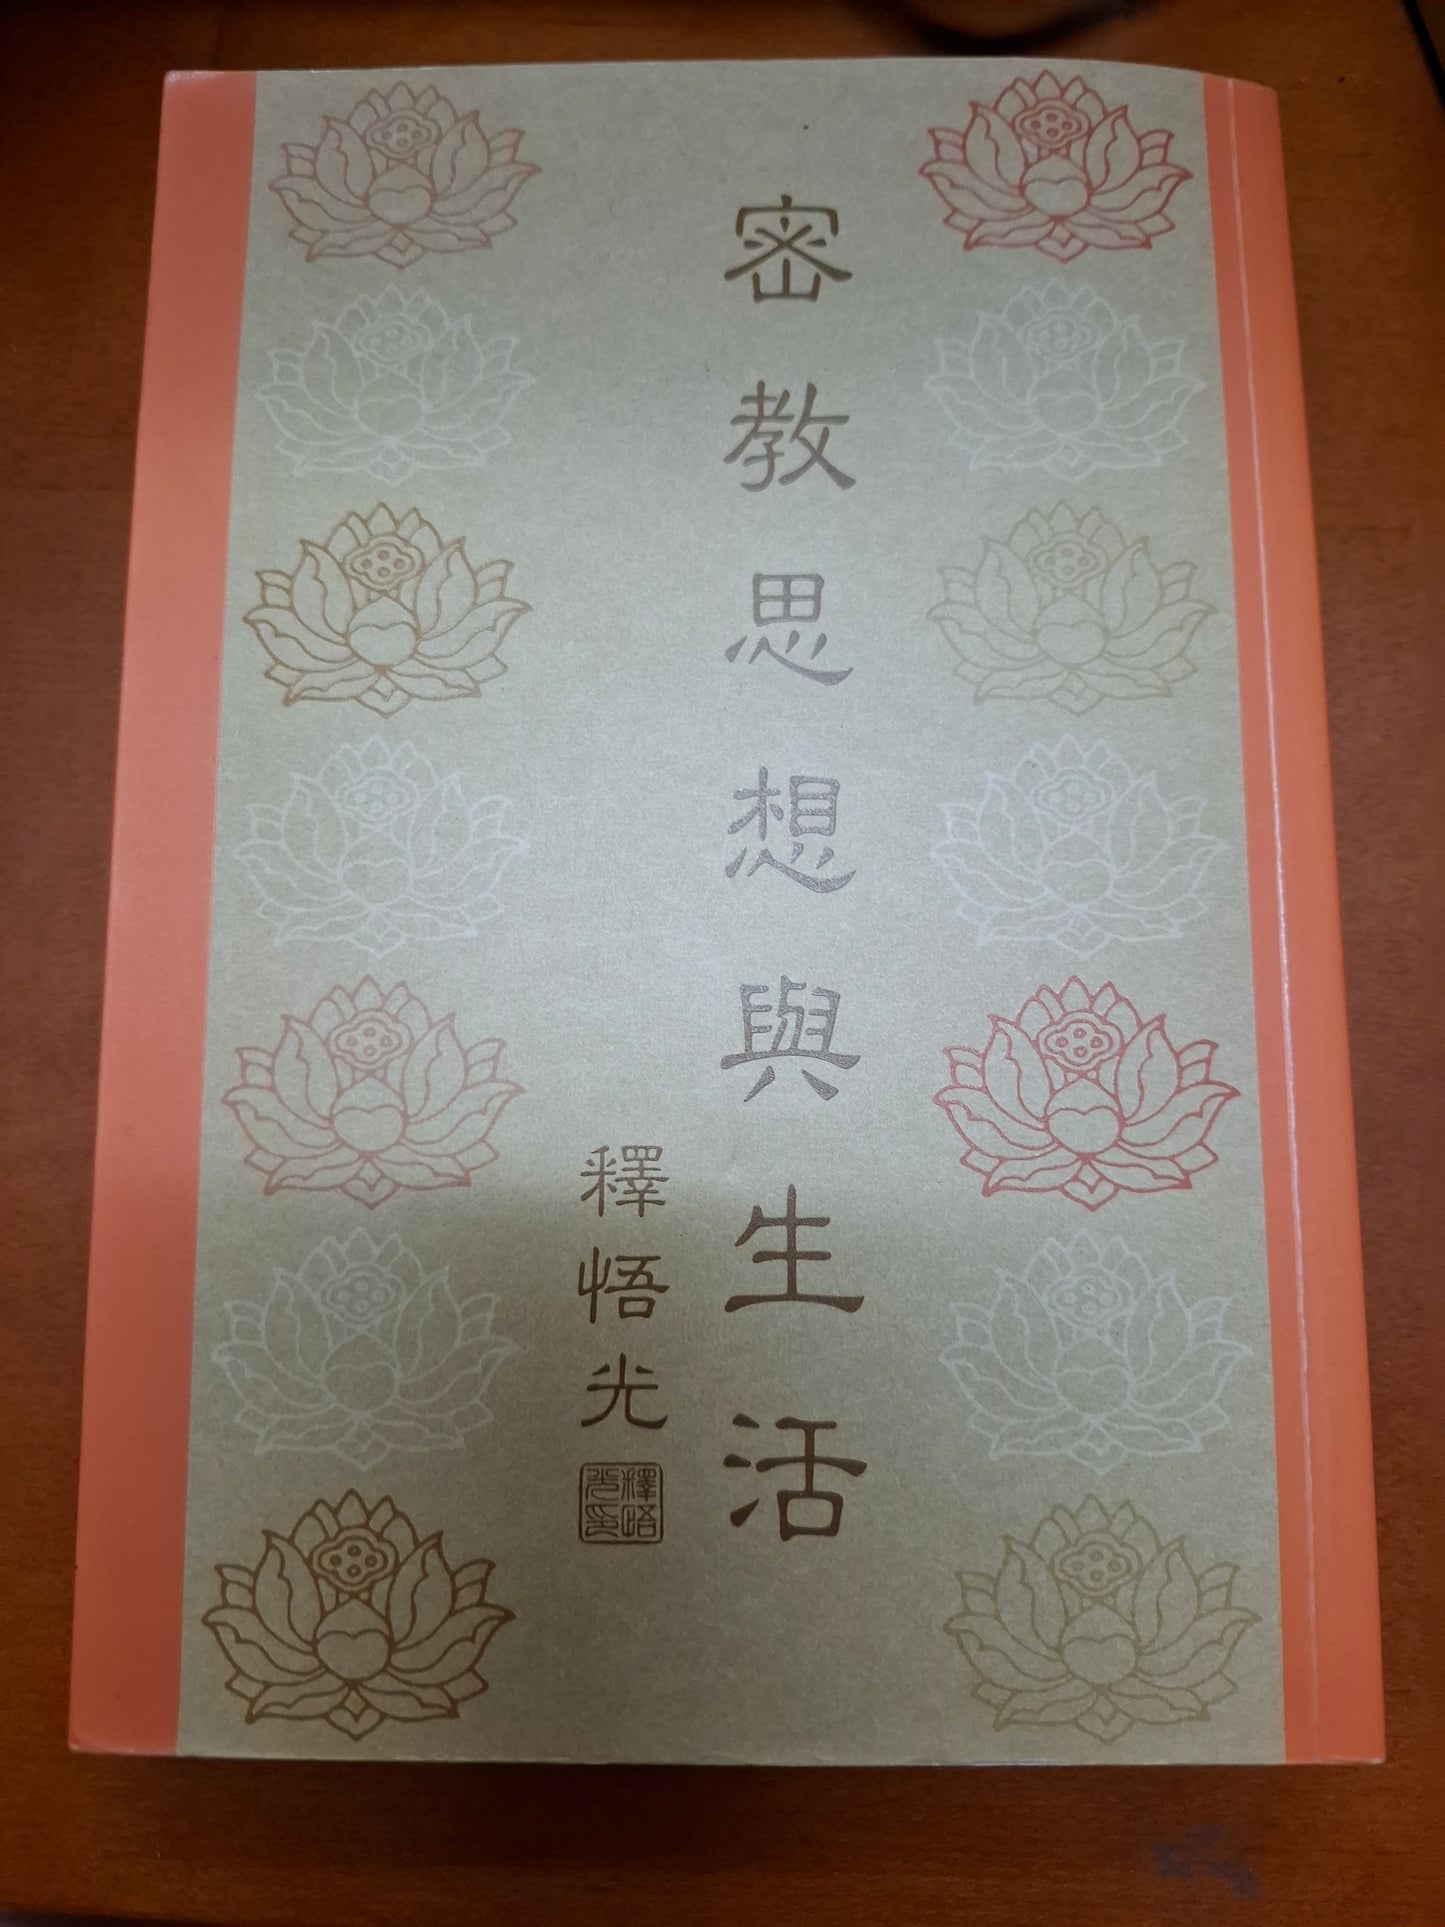 密教思想與生活
釋悟光
釋悟光印